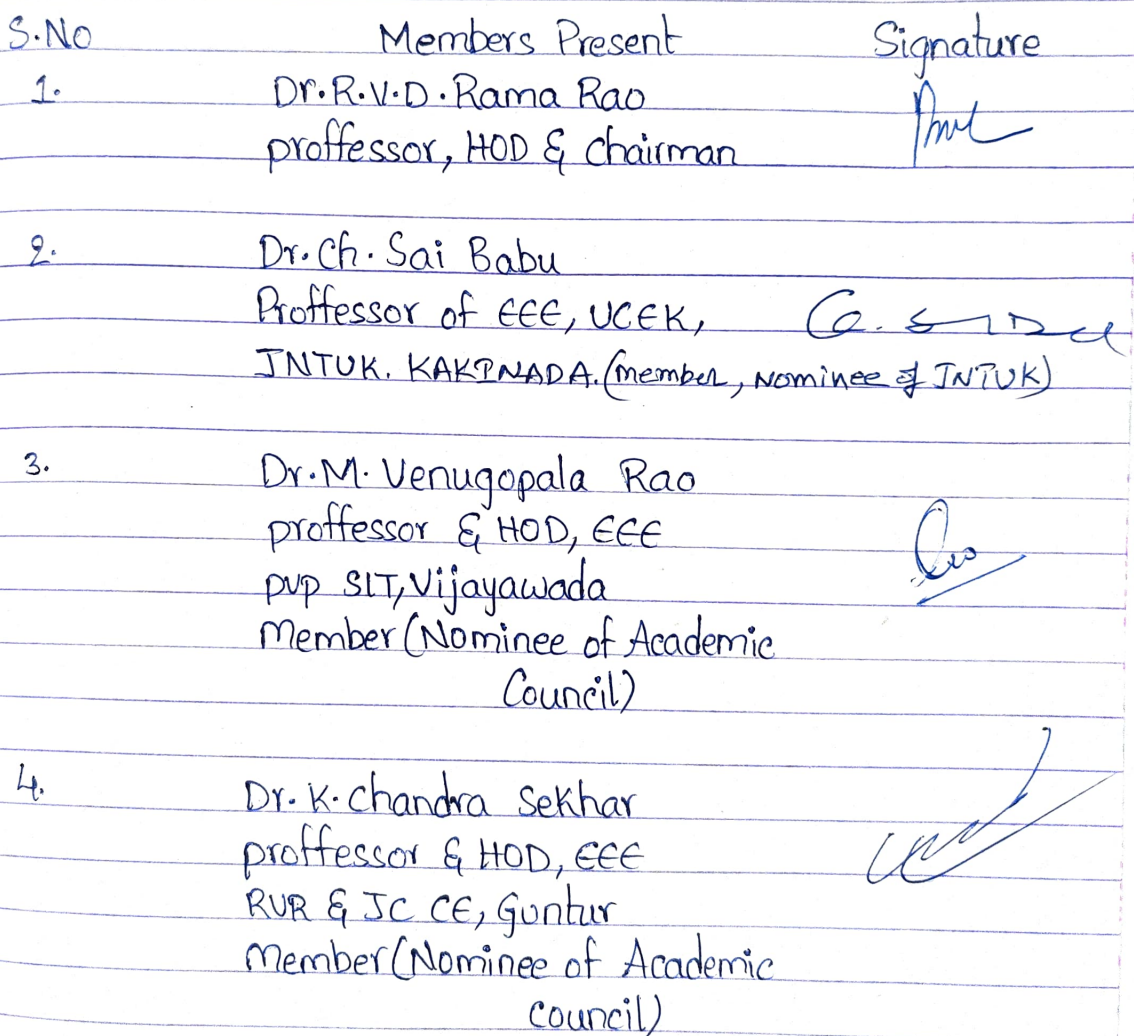 S.No Members Present Signature
1. Dr.R.V.D.Rama Rao
proffessor, HOD & Chairman
2. Dr.Ch. Sai Babu
Proffessor of EEE, UCEK,
JNTUK. KAKINADA.(member, Nominee of JNTUK)
3. Dr.M. Venugopala Rao
proffessor & HOD, EEE
pvp SIT, Vijayawada
Member (Nominee of Academic
Council)
4. Dr. K. Chandra Sekhar
proffessor & HOD, EEE
RVR & JC CE, Guntur
Member (Nominee of Academic
council)